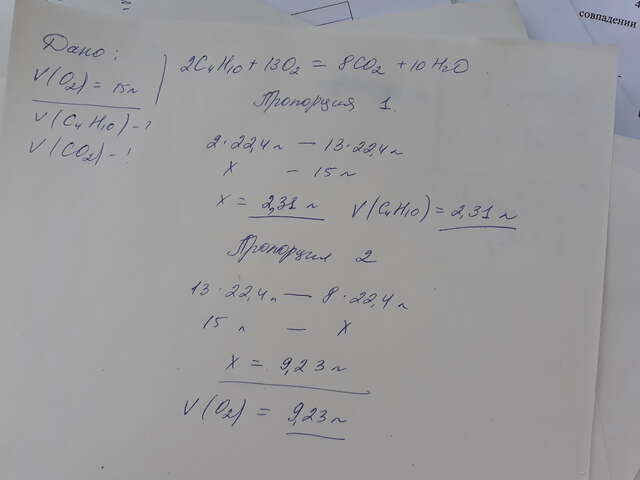 Дано:
V(O2) = 15л
V(C4H10) - ?
V(CO2) - ?
2C4H10 + 13O2 = 8CO2 + 10H2O
Пропорция 1.
2·22,4л — 13·22,4л
x — 15л
x = 2,31 л V(C4H10) = 2,31 л
Пропорция 2
13·22,4л — 8·22,4л
15л — x
x = 9,23л
V(O2) = 9,23л
совпадении